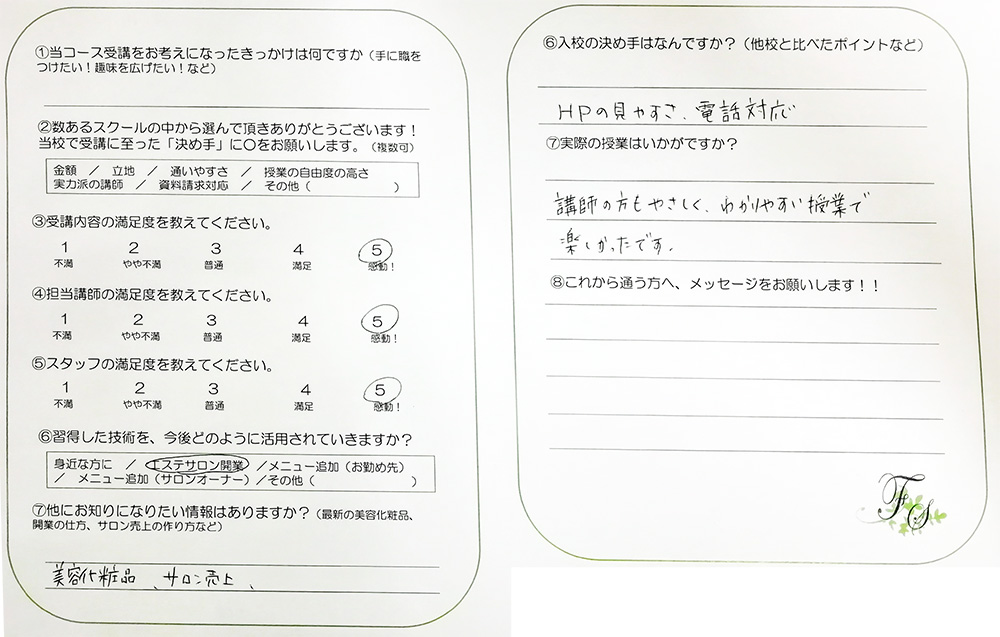 ①当コース受講をお考えになったきっかけは何ですか（手に職を
つけたい！趣味を広げたい！など）
②数あるスクールの中から選んで頂きありがとうございます！
当校で受講に至った「決め手」に〇をお願いします。（複数可）
金額 ／ 立地 ／ 通いやすさ ／ 授業の自由度の高さ
実力派の講師 ／ 資料請求対応 ／ その他（ ）
③受講内容の満足度を教えてください。
1 2 3 4 5
不満 やや不満 普通 満足 感動！
④担当講師の満足度を教えてください。
1 2 3 4 5
不満 やや不満 普通 満足 感動！
⑤スタッフの満足度を教えてください。
1 2 3 4 5
不満 やや不満 普通 満足 感動！
⑥習得した技術を、今後どのように活用されていきますか？
身近な方に ／ エステサロン開業 ／メニュー追加（お勤め先）
／ メニュー追加（サロンオーナー）／その他（ ）
⑦他にお知りになりたい情報はありますか？（最新の美容化粧品、
開業の仕方、サロン売上の作り方など）
美容化粧品、サロン売上、
⑥入校の決め手はなんですか？（他校と比べたポイントなど）
HPの見やすさ、電話対応
⑦実際の授業はいかがですか？
講師の方もやさしく、わかりやすい授業で
楽しかったです。
⑧これから通う方へ、メッセージをお願いします！！
FS